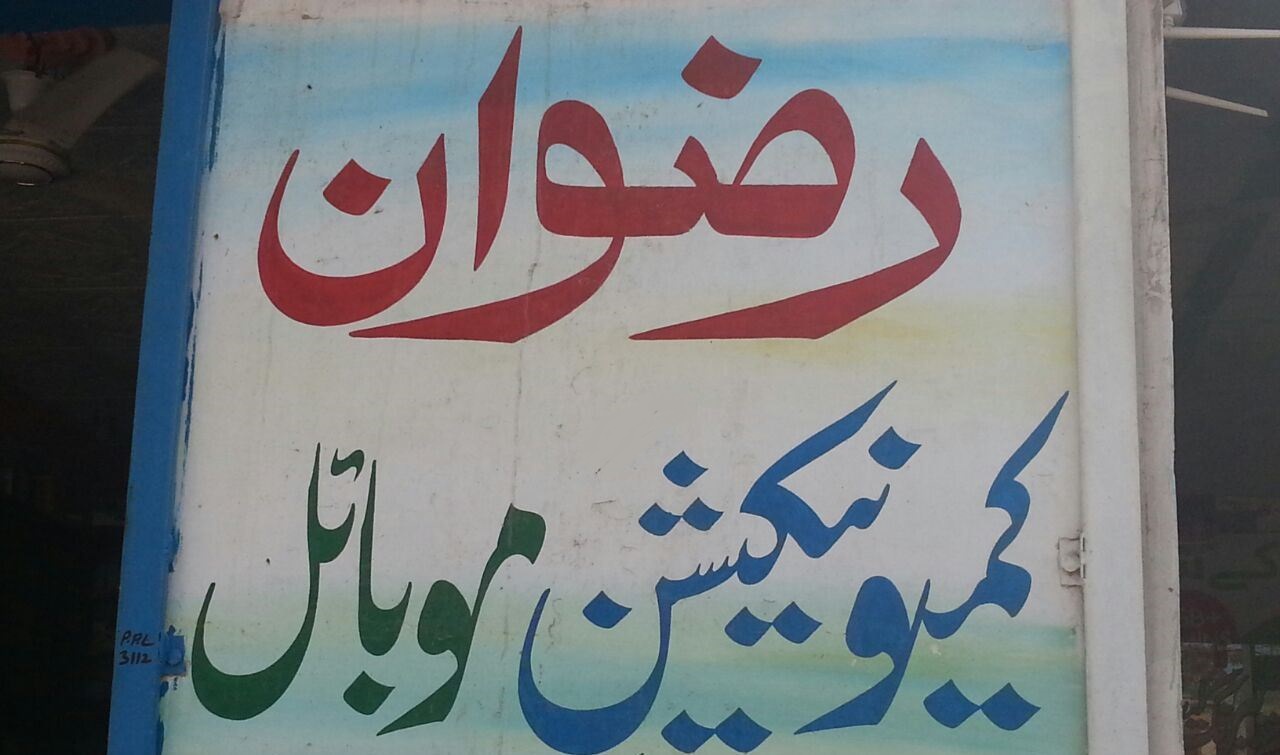 رضوان
کمیونیکیشن موبائل
3112